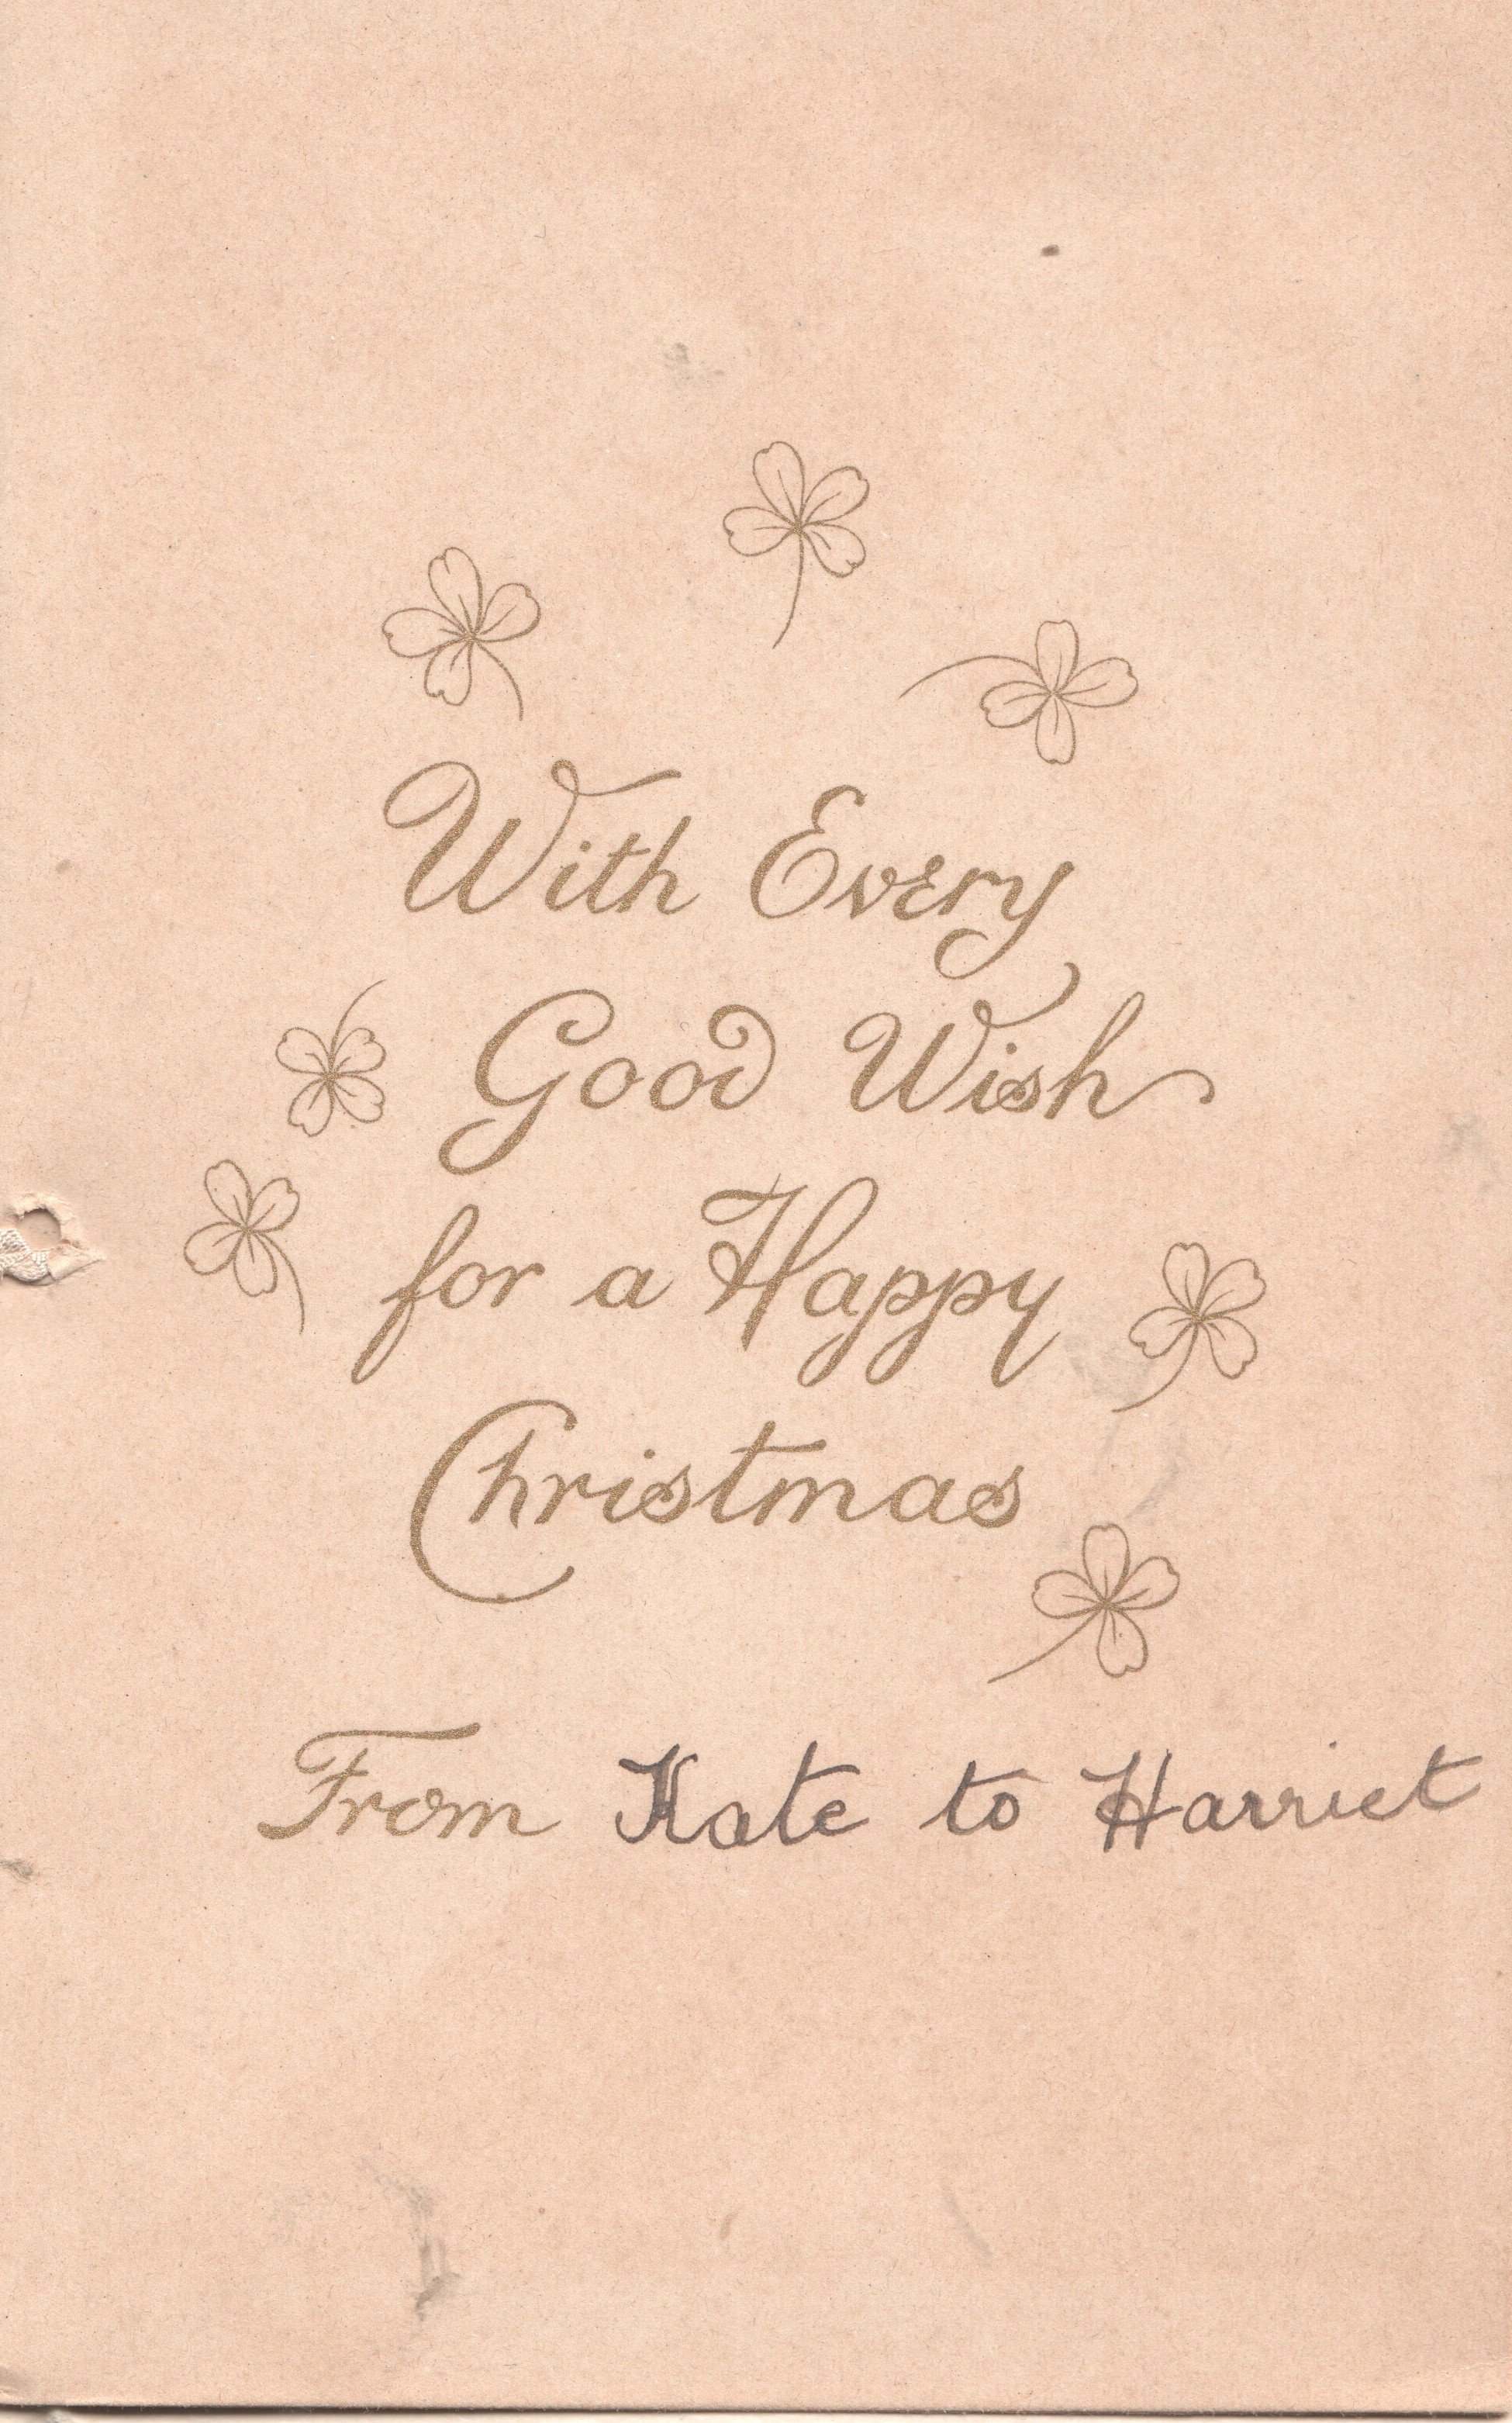 With Every
Good Wish
for a Happy
Christmas
From Kate to Harriet